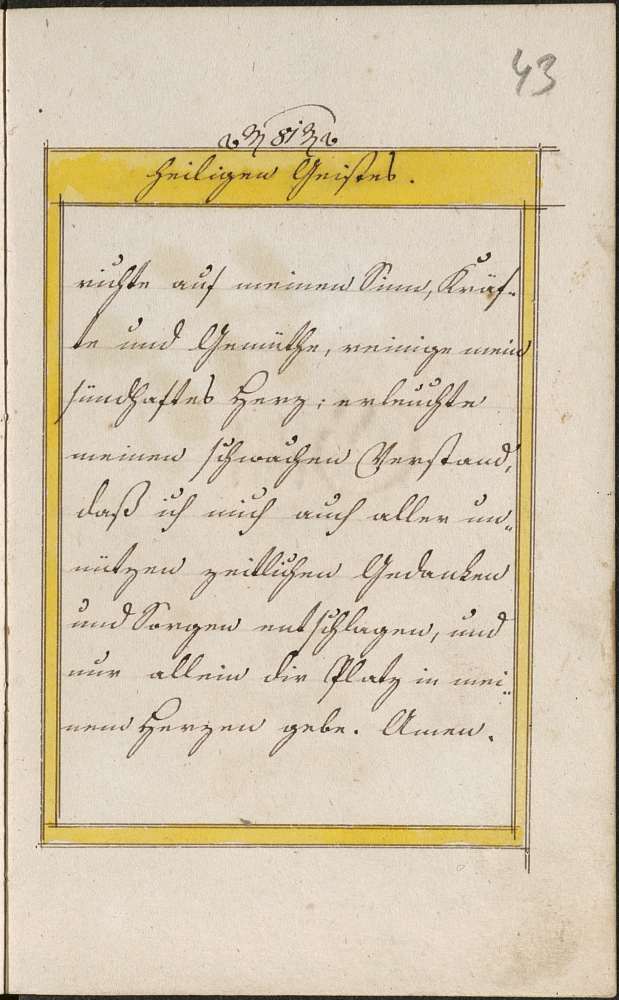 43
81
heiligen Geistes.
richte auf meinen Sinn, Kräf-
te und Gemüthe, reinige mein
sündhaftes Herz; erleuchte
meinen schwachen Verstand,
daß ich mich auch aller un-
nützen zeitlichen Gedanken
und Sorgen entschlagen, und
nur allein dir Platz in mei-
nem Herzen gebe. Amen.